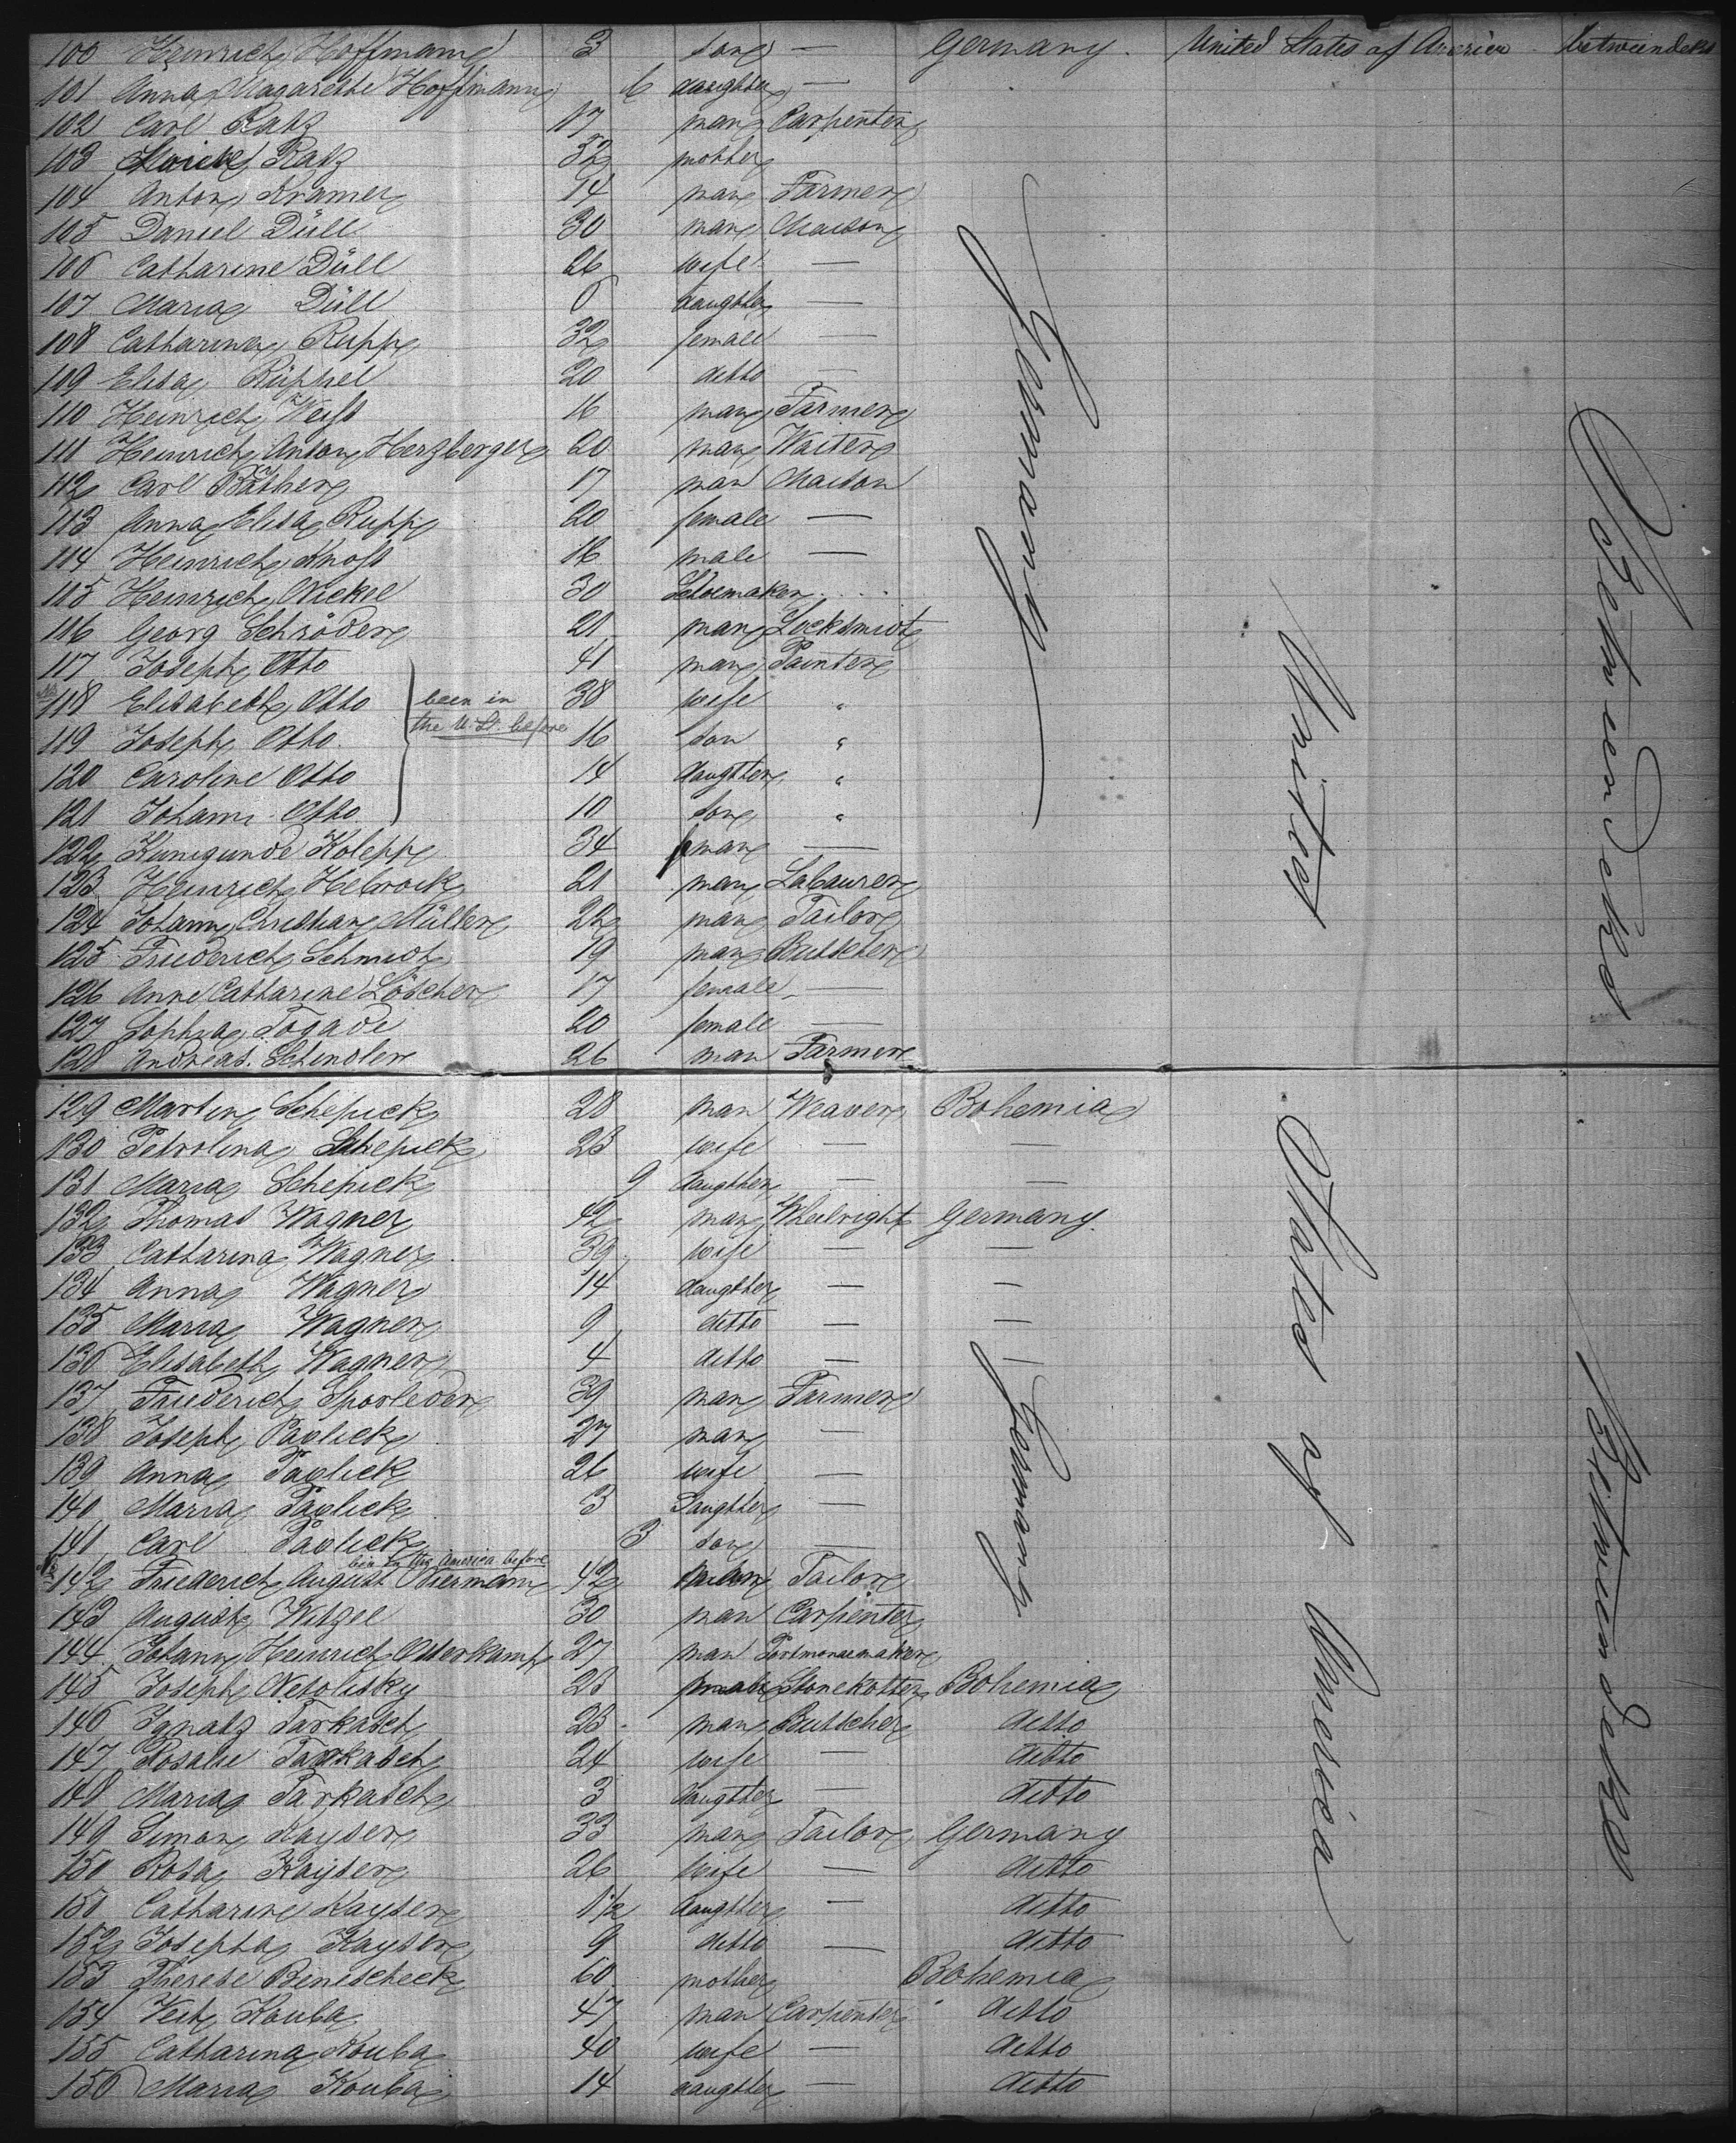 100 Heinrich Hoffmann 3 son — Germany. United States of America betweendeks
101 Anna Magarethe Hoffmann 6 daughter —
102 Carl Ratz 17 man Carpenter
103 Ratz 32 mother
104 Anton Kramer 14 man Farmer
105 Daniel Düll 30 man Maison
106 Catharine Düll 26 wife —
107 Maria Düll 6 daugther —
108 Catharina Rupp 32 female —
109 Elisa Rüppel 20 ditto —
110 Heinrich Weiss 16 man Farmer
111 Heinrich Anton Herzberger 20 man Waiter
112 Carl Bäther 17 man Maison
113 Anna Elisa Rupp 20 female —
114 Heinrich Knoss 16 male —
115 Heinrich Nickel 30 Schoemaker
116 Georg Schröder 21 man Locksmidt
117 Joseph Otto 41 man Painter
118 Elisabeth Otto been in 38 wife "
the U. St. before
119 Joseph Otto 16 son "
120 Caroline Otto 14 daugther "
121 Johann Otto 10 son "
122 Kunigunde Kolepp 34 fman —
123 Heinrich Hebrock 21 man Labaurer
124 Johann Christian Müller 22 man Tailor
125 Friederich Schmidt 19 man Butscher
126 Anne Catharine Löscher 17 female —
127 Sophia Togade 20 female —
128 Andreas Schindler 26 man Farmer
Germany
United
Betweendeks
129 Martin Schepick 28 man Weaver Bohemia
130 Petrolina Schepick 23 wife — —
131 Maria Schepick 9 daugther — —
132 Thomas Wagner 42 man Wheelright Germany.
133 Catharina Wagner 39 wife — —
134 Anna Wagner 14 daugther — —
135 Maria Wagner 9 ditto — —
136 Elisabeth Wagner 4 ditto — —
137 Friederich Sporleder 39 man Farmer
138 Joseph Pavlick 27 man —
139 Anna Pavlick 26 wife —
140 Maria Pavlick 3 Daugther —
141 Carl Pavlick 3 son
America before
142 Friederich August Biermann 42 Tailor
143 August Witzel 30 man Carpenter
144 Johann Heinrich Osterkamp 27 man Portmonaemaker
145 Joseph Nesolisky 23 male Stonekotter Bohemia
146 Ignatz Tarkasch 23 man Butscher ditto
147 Rosalie Tarkasch 24 wife — ditto
148 Maria Tarkasch 3 daugther — ditto
149 Simon Kayser 33 man Tailor Germany
150 Rosa Kayser 26 wife — ditto
151 Catharine Kayser 1 1/2 daugther — ditto
152 Josepha Kayser 9 ditto — ditto
153 Therese Benescheck 60 mother Bohemia
154 Veit Kouba 47 man Carpenter ditto
155 Catharina Kouba 40 wife — ditto
156 Maria Kouba 14 daugther — ditto
Germany
States of America
Betweendeks